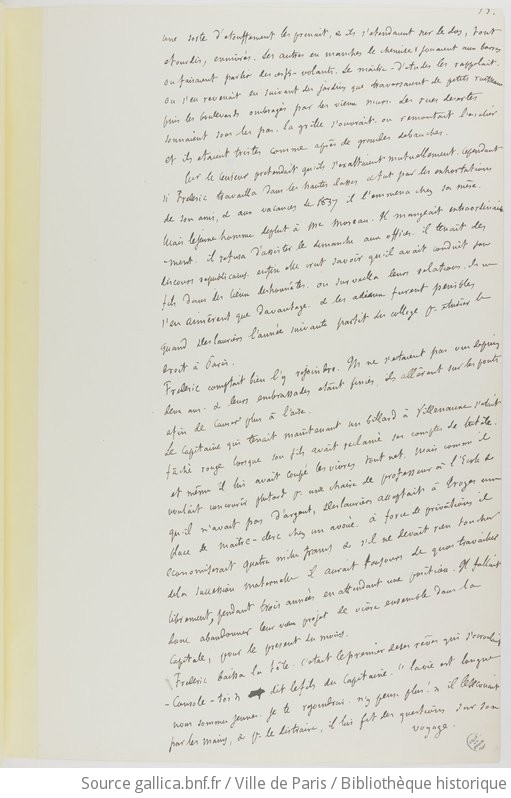 13.
une sorte d'etouffement les prenait, & ils s'etendaient sur le dos, tout
etourdis, enivrés. Les autres en manches de chemise, jouaient aux barres
ou faisaient partir des cerfs-volants. Le maître-d'études les rappelait.
On s'en revenait en suivant les jardins que traversaient de petits ruisseaux
puis les boulevards ombragés par les vieux murs. Les rues desertes
sonnaient sous les pas. la grille s'ouvrait. on remontait l'escalier
et ils etaient tristes comme après de grandes debauches.
le Censeur pretendait qu'ils s'exaltaient mutuellement. Cependant
si Frederic travailla dans les hautes classes ce fut par les exhortations
de son ami, & aux vacances de 1837 il l'emmena chez sa mère.
Mais le jeune homme deplut à Me Moreau. Il mangeait extraordinaire
-ment. il refusa d'assister le dimanche aux offices. il tenait des
discours republicains. enfin elle crut savoir qu'il avait conduit son
fils dans des lieux deshonnêtes. on surveilla leurs relations. ils ne
s'en aimèrent que davantage. & les adieux furent penibles
quand Deslauriers l'année suivante partit du college pr etudier le
droit à Paris.
Frederic comptait bien l'y rejoindre. Ils ne s'etaient pas vus depuis
deux ans. & leurs embrassades etant finies, ils allèrent sur les ponts
afin de causer plus à l'aise.
Le Capitaine qui tenait maintenant un billard à Villenauxe s'etait
fâché rouge lorsque son fils avait reclamé ses comptes de tutelle.
et même il lui avait coupé les vivres tout net. Mais comme il
voulait concourir plus tard pr une chaire de professeur à l'Ecole &
qu'il n'avait pas d'argent, Deslauriers acceptait à Troyes une
place de maitre-clerc chez un avoué. à force de privations il
economiserait quatre mille francs & s'il ne devait rien toucher
de la succession maternelle il aurait toujours de quoi travailler
librement, pendant trois années en attendant une position. Il fallait
donc abandonner leur vieux projet de vivre ensemble dans la
Capitale, pour le present du moins.
Frederic baissa la tête. C'etait le premier de ses rêves qui s'ecroulait
- Console-toi » dit le fils du Capitaine. « la vie est longue
nous sommes jeunes. je te rejoindrai. n'y pense plus! » il le secouait
par les mains, & pr le distraire, il lui fit des questions sur son
voyage.
Source gallica.bnf.fr / Ville de Paris / Bibliothèque historique